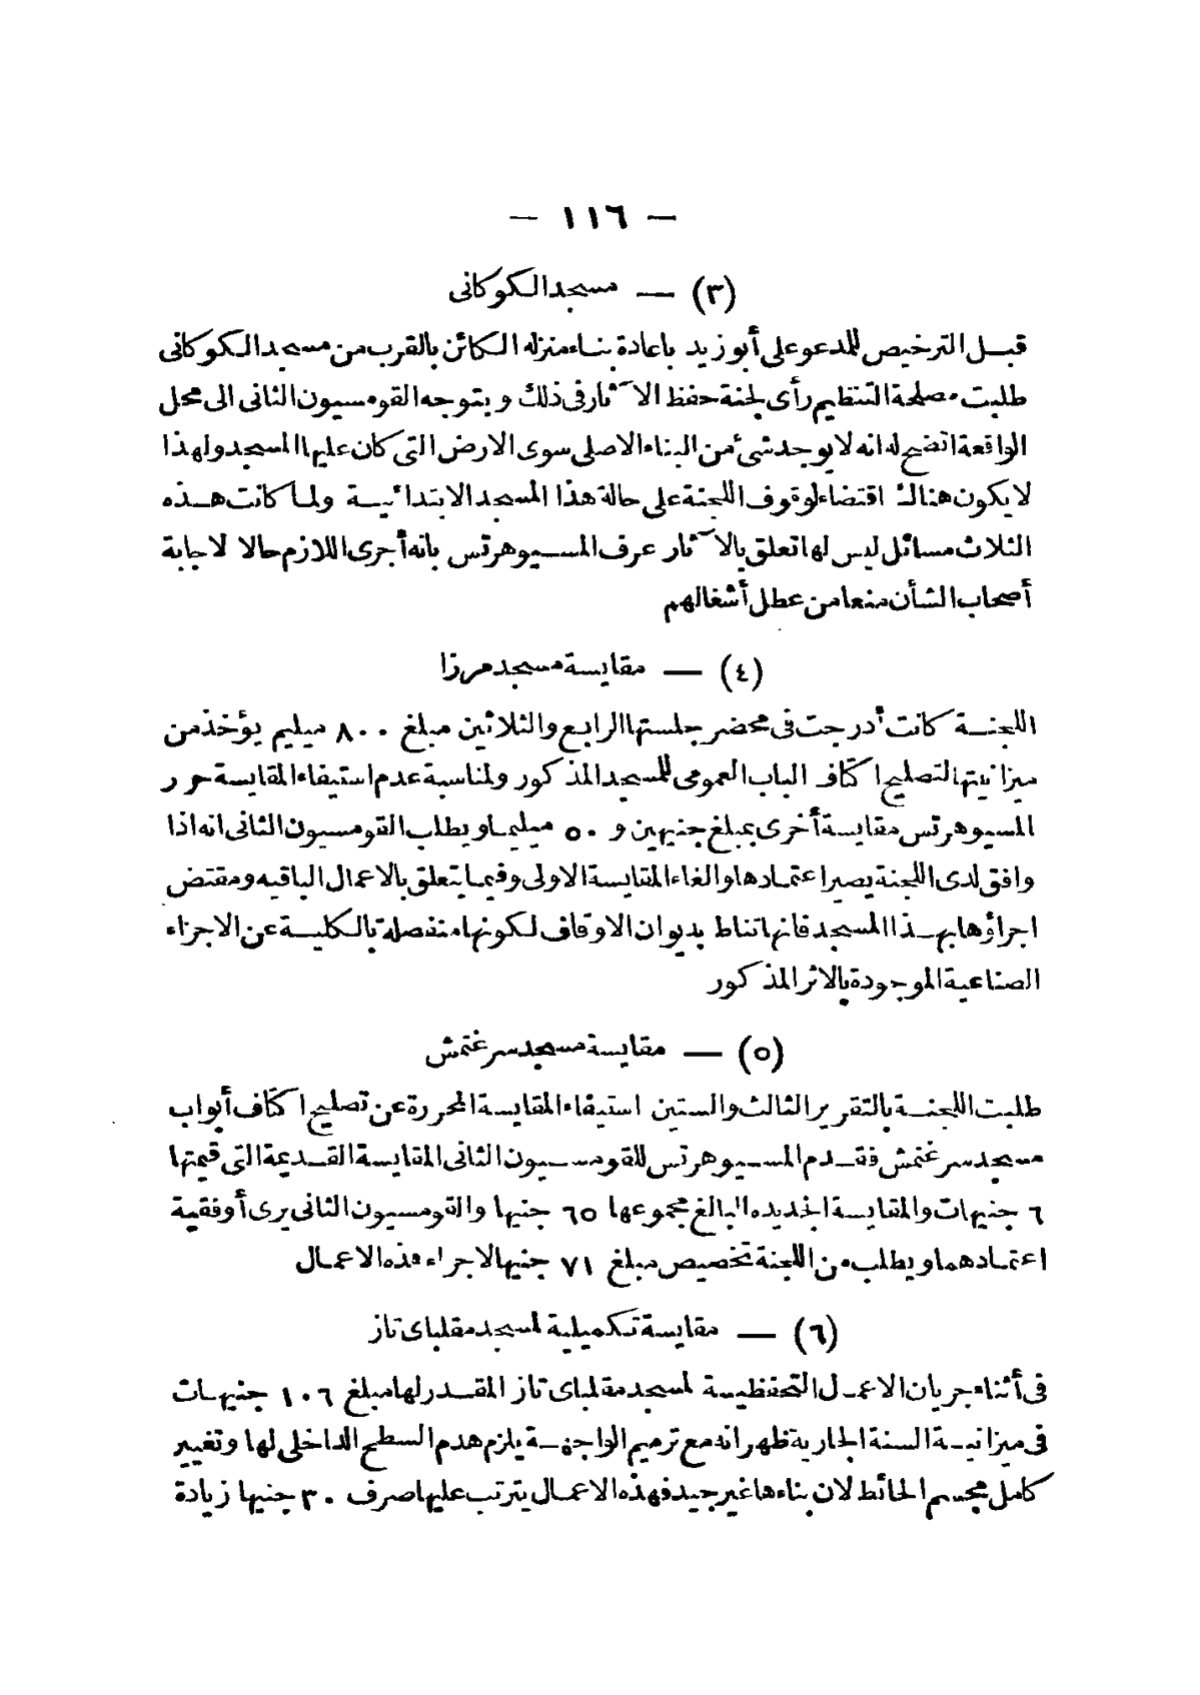 — ١١٦ —
(٣) — مسجد الكوكانى
قبل الترخيص للمدعو على أبو زيد باعادة بناء منزله الكائن بالقرب من مسجد الكوكانى
طلبت مصلحة التنظيم رأى لجنة حفظ الآثار فى ذلك وبتوجه القومسيون الثانى الى محل
الواقعة اتضح له انه لا يوجد شئ من البناء الاصلى سوى الارض التى كان عليها المسجد ولهذا
لا يكون هناك اقتضاء لوقوف اللجنة على حالة هذا المسجد الابتدائية ولما كانت هذه
الثلاث مسائل ليس لها تعلق بالآثار عرف المسيو هرتس بانه أجرى اللازم حالا لاجابة
أصحاب الشأن منعا من عطل أشغالهم
(٤) — مقايسة مسجد مرزا
اللجنة كانت أدرجت فى محضر جلستها الرابع والثلاثين مبلغ ٨٠٠ ميليم يؤخذ من
ميزانيتها لتصليح اكتاف الباب العمومى للمسجد المذكور ولمناسبة عدم استيفاء المقايسة حرر
المسيو هرتس مقايسة أخرى بمبلغ جنيهين و ٥٠ ميليما ويطلب القومسيون الثانى انه اذا
وافق لدى اللجنة يصير اعتمادها والغاء المقايسة الاولى وفيما يتعلق بالاعمال الباقيه ومقتض
اجراؤها بهذا المسجد فانها تناط بديوان الاوقاف لكونها منفصلة بالكلية عن الاجزاء
الصناعية الموجودة بالاثر المذكور
(٥) — مقايسة مسجد سرغتمش
طلبت اللجنة بالتقرير الثالث والستين استيفاء المقايسة المحررة عن تصليح اكتاف أبواب
مسجد سرغتمش فقدم المسيو هرتس للقومسيون الثانى المقايسة القديمة التى قيمتها
٦ جنيهات والمقايسة الجديده البالغ مجموعها ٦٥ جنيها والقومسيون الثانى يرى أوفقية
اعتمادهما ويطلب من اللجنة تخصيص مبلغ ٧١ جنيها لاجراء هذه الاعمال
(٦) — مقايسة تكميلية لمسجد مقلباى تاز
فى أثناء جريان الاعمال التحفظيية لمسجد مقلباى تاز المقدر لها مبلغ ١٠٦ جنيهات
فى ميزانية السنة الجارية ظهر انه مع ترميم الواجهة يلزم هدم السطح الداخلى لها وتغيير
كامل مجسم الحائط لان بناءها غير جيد فهذه الاعمال يترتب عليها صرف ٣٠ جنيها زيادة